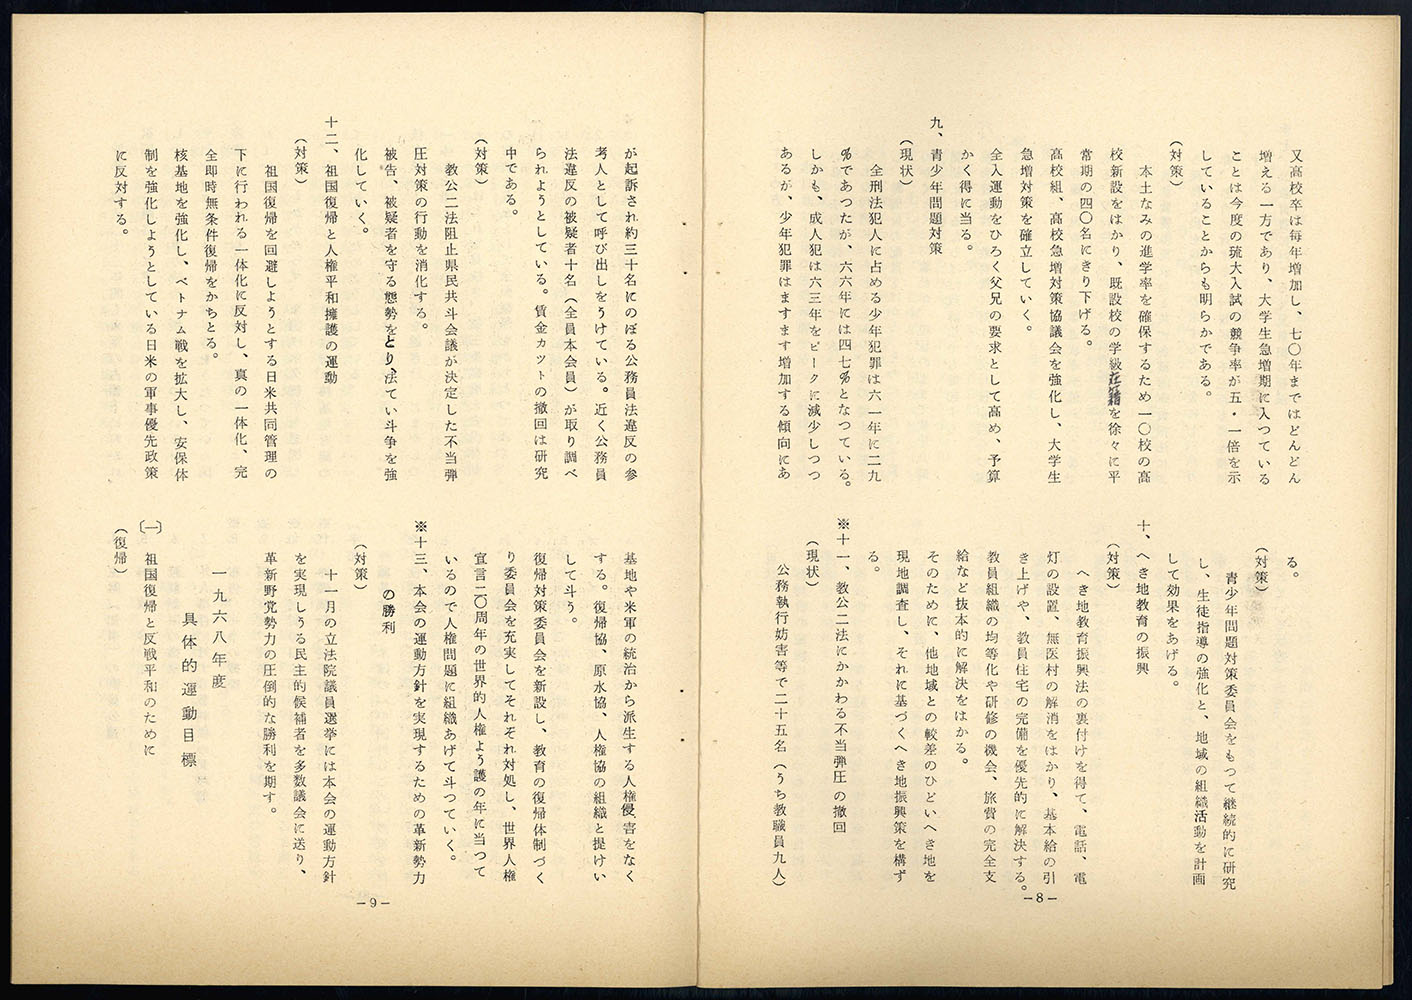 又高校卒は毎年増加し、七〇年まではどんどん
増える一方であり、大学生急増期に入つている
ことは今度の琉大入試の競争率が五・一倍を示
していることからも明らかである。
（対策）
本土なみの進学率を確保するため一〇校の高
校新設をはかり、既設校の学級在籍を徐々に平
常期の四〇名にきり下げる。
高校組、高校急増対策協議会を強化し、大学生
急増対策を確立していく。
全入運動をひろく父兄の要求として高め、予算
かく得に当る。
九、青少年問題対策
（現状）
全刑法犯人に占める少年犯罪は六一年に二九
％であつたが、六六年には四七％となつている。
しかも、成人犯は六三年をピークに減少しつつ
あるが、少年犯罪はますます増加する傾向にあ
る。
（対策）
青少年問題対策委員会をもつて継続的に研究
し、生徒指導の強化と、地域の組織活動を計画
して効果をあげる。
十、へき地教育の振興
（対策）
へき地教育振興法の裏付けを得て、電話、電
灯の設置、無医村の解消をはかり、基本給の引
き上げや、教員住宅の完備を優先的に解決する。
教員組織の均等化や研修の機会、旅費の完全支
給など抜本的に解決をはかる。
そのために、他地域との較差のひどいへき地を
現地調査し、それに基づくへき地振興策を構ず
る。
※十一、教公二法にかかわる不当弾圧の撤回
（現状）
公務執行妨害等で二十五名（うち教職員九人）
－8－
が起訴され約三十名にのぼる公務員法違反の参
考人として呼び出しをうけている。近く公務員
法違反の被疑者十名（全員本会員）が取り調べ
られようとしている。賃金カツトの撤回は研究
中である。
（対策）
教公二法阻止県民共斗会議が決定した不当弾
圧対策の行動を消化する。
被告、被疑者を守る態勢をとり、法てい斗争を強
化していく。
十二、祖国復帰と人権平和擁護の運動
（対策）
祖国復帰を回避しようとする日米共同管理の
下に行われる一体化に反対し、真の一体化、完
全即時無条件復帰をかちとる。
核基地を強化し、ベトナム戦を拡大し、安保体
制を強化しようとしている日米の軍事優先政策
に反対する。
基地や米軍の統治から派生する人権侵害をなく
する。復帰協、原水協、人権協の組織と提けい
して斗う。
復帰対策委員会を新設し、教育の復帰体制づく
り委員会を充実してそれぞれ対処し、世界人権
宣言二〇周年の世界的人権よう護の年に当つて
いるので人権問題に組織あげて斗つていく。
※十三、本会の運動方針を実現するための革新勢力
の勝利
（対策）
十一月の立法院議員選挙には本会の運動方針
を実現しうる民主的候補者を多数議会に送り、
革新野党勢力の圧倒的な勝利を期す。
一九六八年度
具体的運動目標
〔一〕祖国復帰と反戦平和のために
（復帰）
－9－